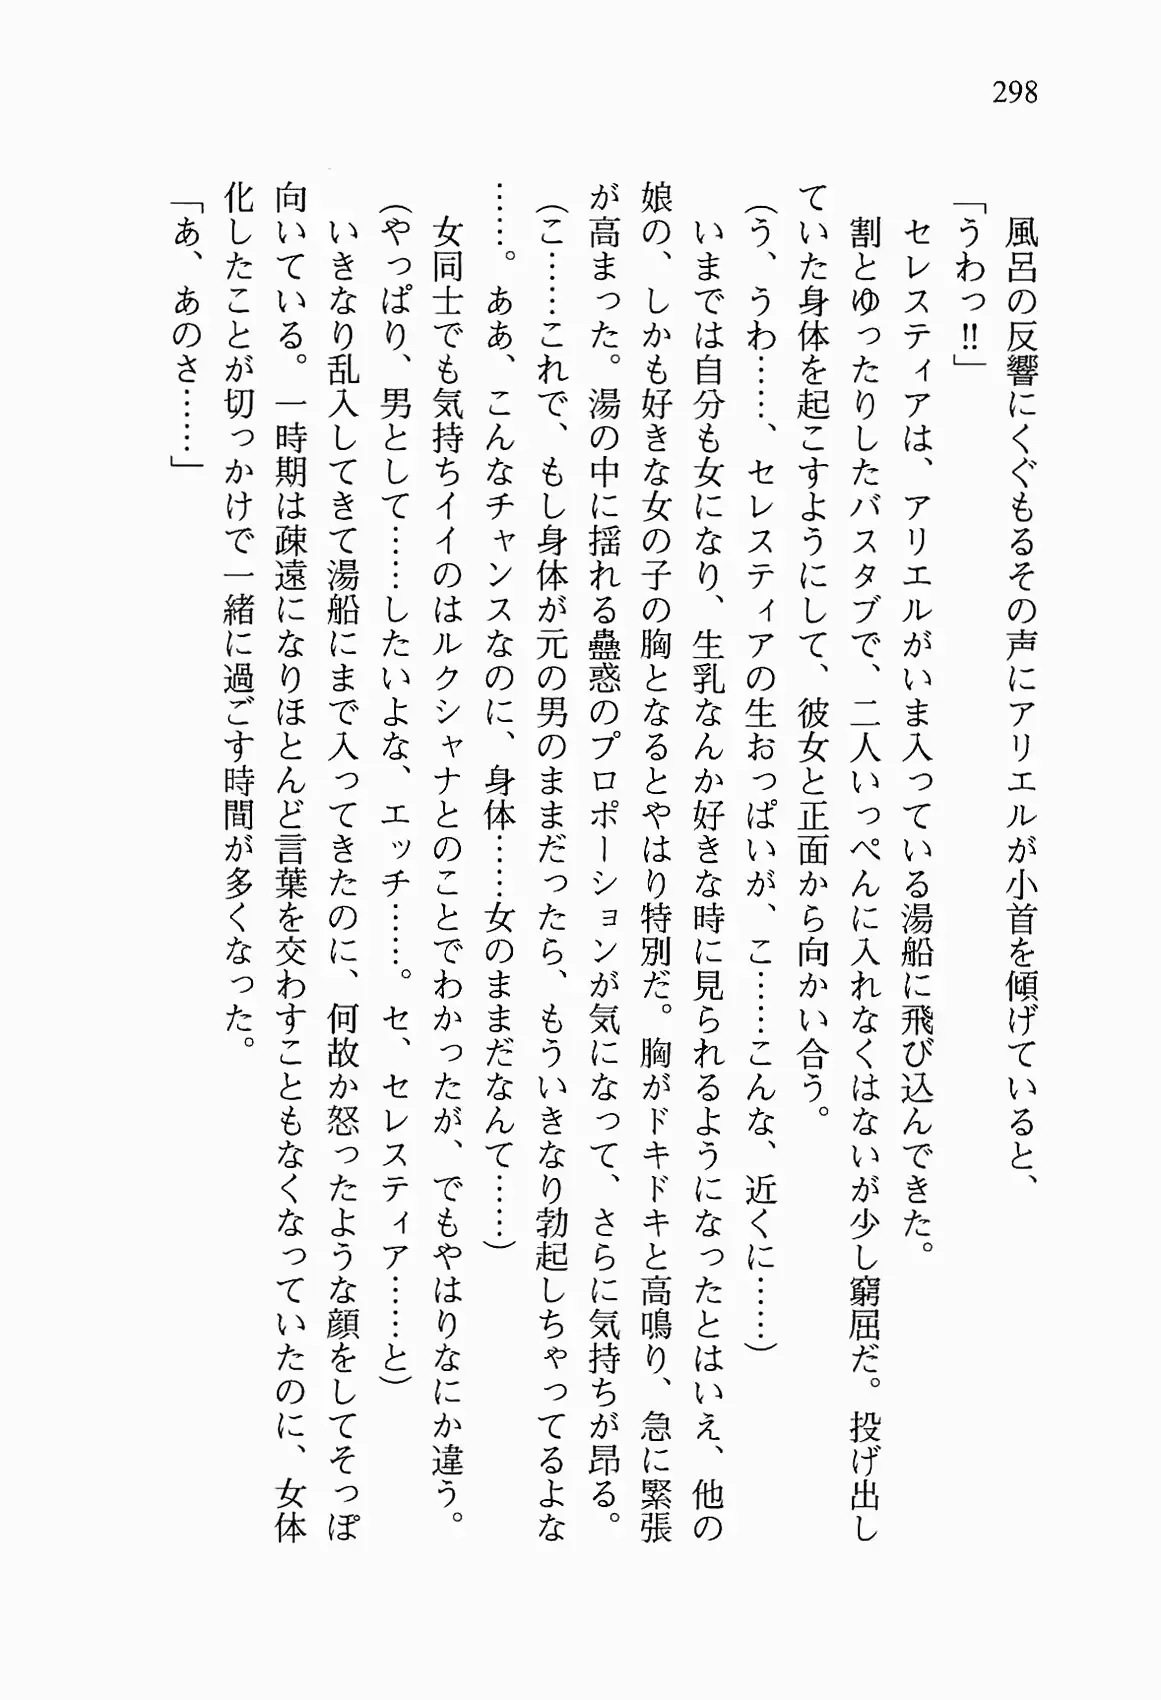 298
風呂の反響にくぐもるその声にアリエルが小首を傾げていると、
「うわっ!!」
セレスティアは、アリエルがいま入っている湯船に飛び込んできた。
割とゆったりしたバスタブで、二人いっぺんに入れなくはないが少し窮屈だ。投げ出し
ていた身体を起こすようにして、彼女と正面から向かい合う。
(う、うわ……、セレスティアの生おっぱいが、こ……こんな、近くに……)
いまでは自分も女になり、生乳なんか好きな時に見られるようになったとはいえ、他の
娘の、しかも好きな女の子の胸となるとやはり特別だ。胸がドキドキと高鳴り、急に緊張
が高まった。湯の中に揺れる蠱惑のプロポーションが気になって、さらに気持ちが昂る。
(こ……これで、もし身体が元の男のままだったら、もういきなり勃起しちゃってるよな
……。ああ、こんなチャンスなのに、身体……女のままだなんて……)
女同士でも気持ちイイのはルクシャナとのことでわかったが、でもやはりなにか違う。
(やっぱり、男として……したいよな、エッチ……。セ、セレスティア……と)
いきなり乱入してきて湯船にまで入ってきたのに、何故か怒ったような顔をしてそっぽ
向いている。一時期は疎遠になりほとんど言葉を交わすこともなくなっていたのに、女体
化したことが切っかけで一緒に過ごす時間が多くなった。
「あ、あのさ……」